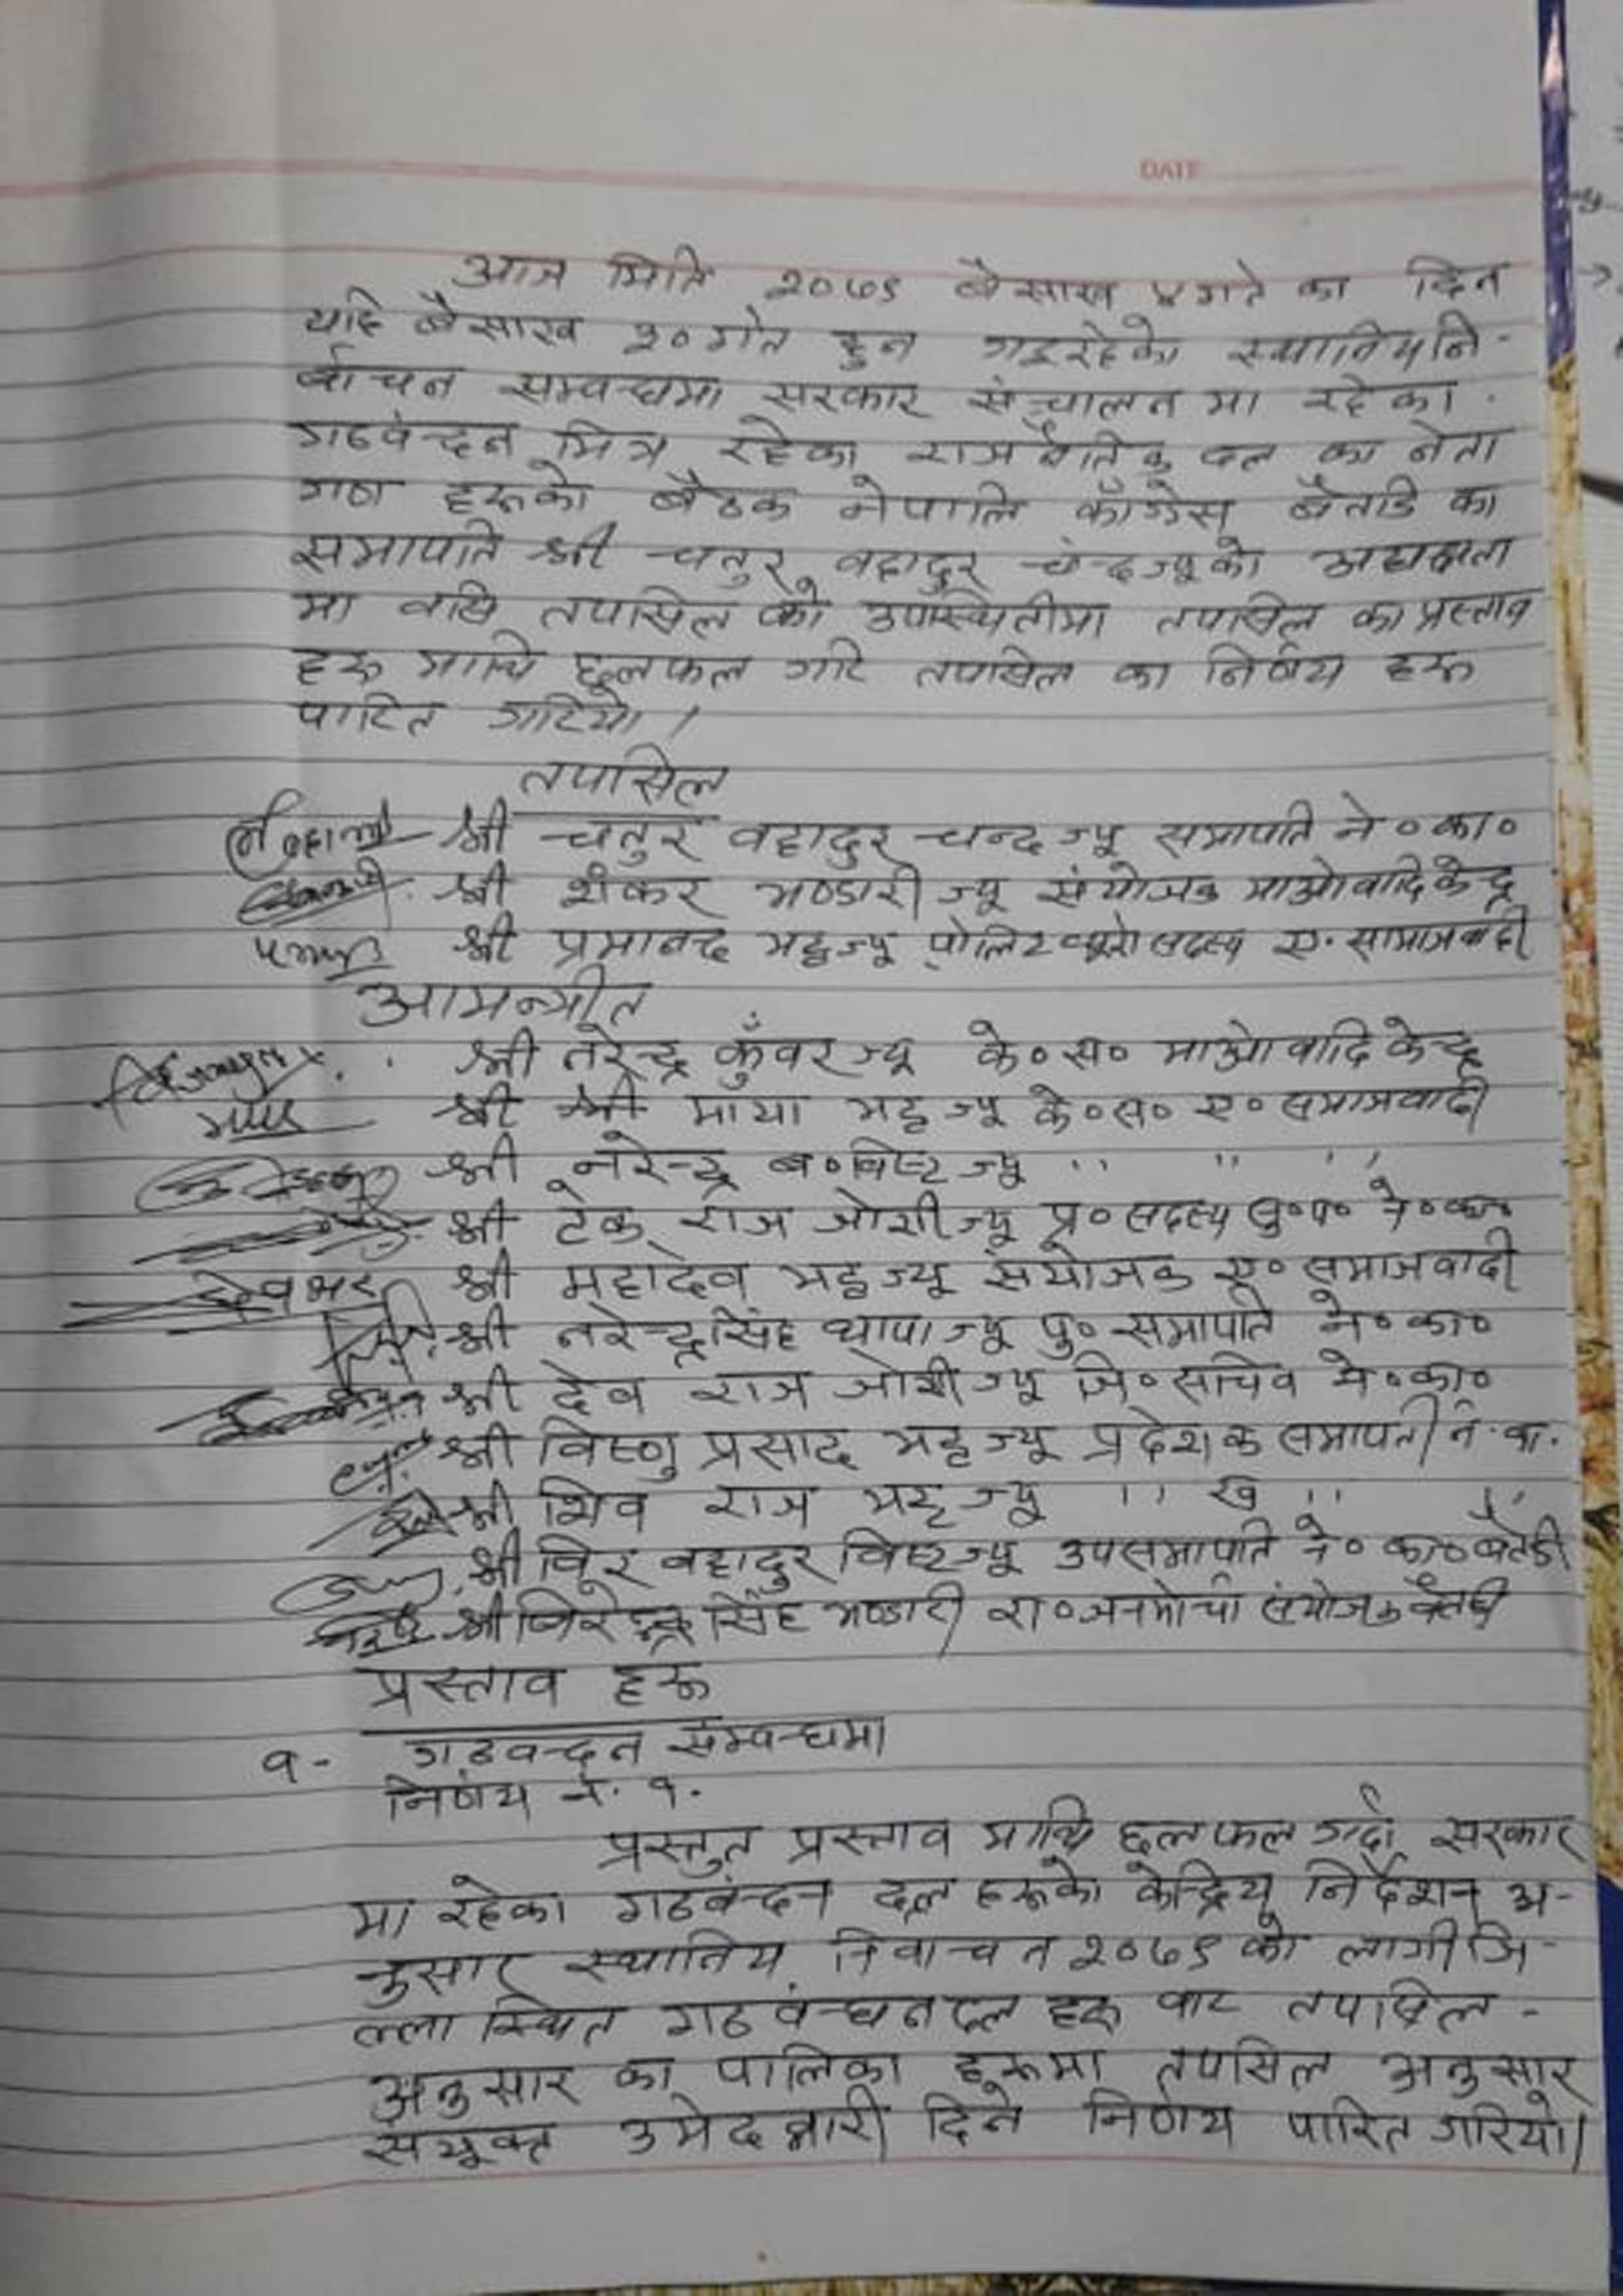 DATE
आज मिति २०७९ बैसाख ४ गते का दिन
यहि बैसाख ३० गते हुन गइरहेको स्थानिय नि-
र्बाचन सम्वन्धमा सरकार संचालन मा रहेका
गठवन्दन मित्र रहेका राजनैतिक दल का नेता
गण हरूको बैठक नेपालि काँग्रेस बैतडि का
सभापति श्री चतुर वहादुर चंन्दज्यूको अध्यक्षता
मा वसि तपासिल को उपस्थितीमा तपासिल का प्रस्ताव
हरू माथि छलफल गरि तपासिल का निर्णय हरू
पारित गरियो।
तपासिल
श्री चतुर वहादुर चन्द ज्यू सभापति ने०का०
श्री शंकर भण्डारी ज्यू संयोजक माओवादि केन्द्र
श्री प्रमानन्द भट्टज्यू पोलिटव्यूरो सदस्य ए. सामाजवादी
आमन्त्रीत
श्री नरेन्द्र कुँवर ज्यू के०स० माओवादि केन्द्र
श्री माया भट्ट ज्यू के०स० ए० समाजवादी
श्री नरेन्द्र ब० विष्ट ज्यू " " "
श्री टेक राज जोशी ज्यू प्र० सदस्य सु०प० ने०का०
श्री महादेव भट्टज्यू संयोजक ए० समाजवादी
श्री नरेन्द्रसिंह थापा ज्यू पु० सभापति ने०का०
श्री देव राज जोशी ज्यू जि० सचिव ने०का०
श्री विष्णु प्रसाद भट्ट ज्यू प्रदेश क सभापती ने.का.
श्री शिव राज भट्ट ज्यू " ख " "
श्री विर वहादुर विष्टज्यू उपसभापति ने० का० बैतडी
श्री विरेन्द्र सिंह भण्डारी रा० जनमोर्चा संयोजक बैतडी
प्रस्ताव हरू
१- गठवन्दन सम्वन्धमा
निर्णय नं. १.
प्रस्तुत प्रस्ताव माथि छलफल गर्दा सरकार
मा रहेका गठवंन्दन दल हरूको केन्द्रिय निर्देशन अ-
नुसार स्थानिय निर्वाचन २०७९ को लागी जि-
ल्ला स्थित गठवंन्धन दल हरू वाट तपासिल -
अनुसार का पालिका हरूमा तपसिल अनुसार
संयूक्त उमेदवारी दिने निर्णय पारित गरियो।